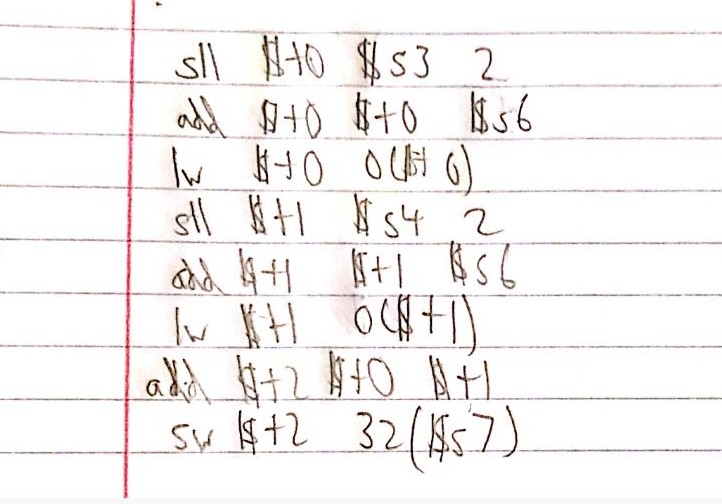 sll $t0 $s3 2
add $t0 $t0 $s6
lw $t0 0($t0)
sll $t1 $s4 2
add $t1 $t1 $s6
lw $t1 0($t1)
add $t2 $t0 $t1
sw $t2 32($s7)